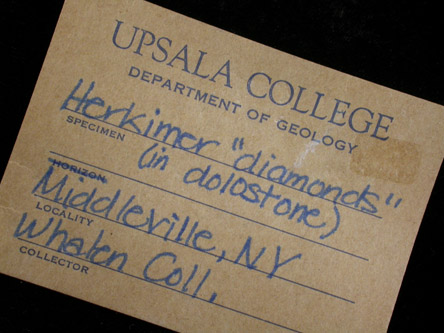 UPSALA COLLEGE
DEPARTMENT OF GEOLOGY
Herkimer "diamonds"
SPECIMEN
(in dolostone)
HORIZON
Middleville, NY
LOCALITY
Whalen Coll.
COLLECTOR